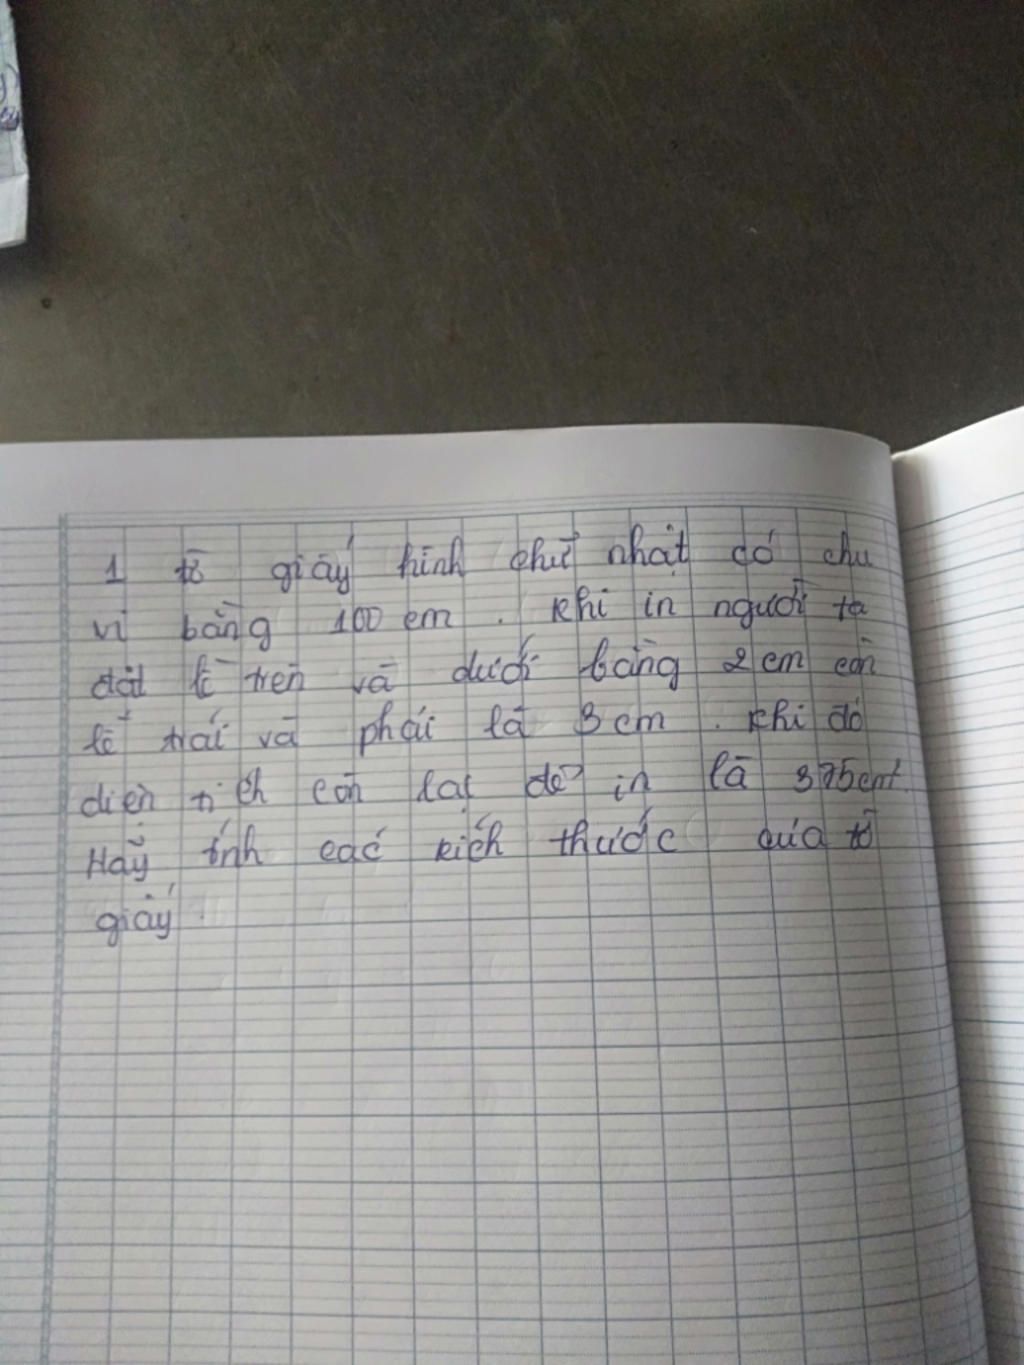 1 tờ giấy hình chữ nhật có chu
vi bằng 100 cm . khi in người ta
đặt lề trên và dưới bằng 2 cm còn
lề trái và phải là 3 cm . khi đó
diện tích còn lại để in là 375cm².
Hãy tính các kích thước của tờ
giấy